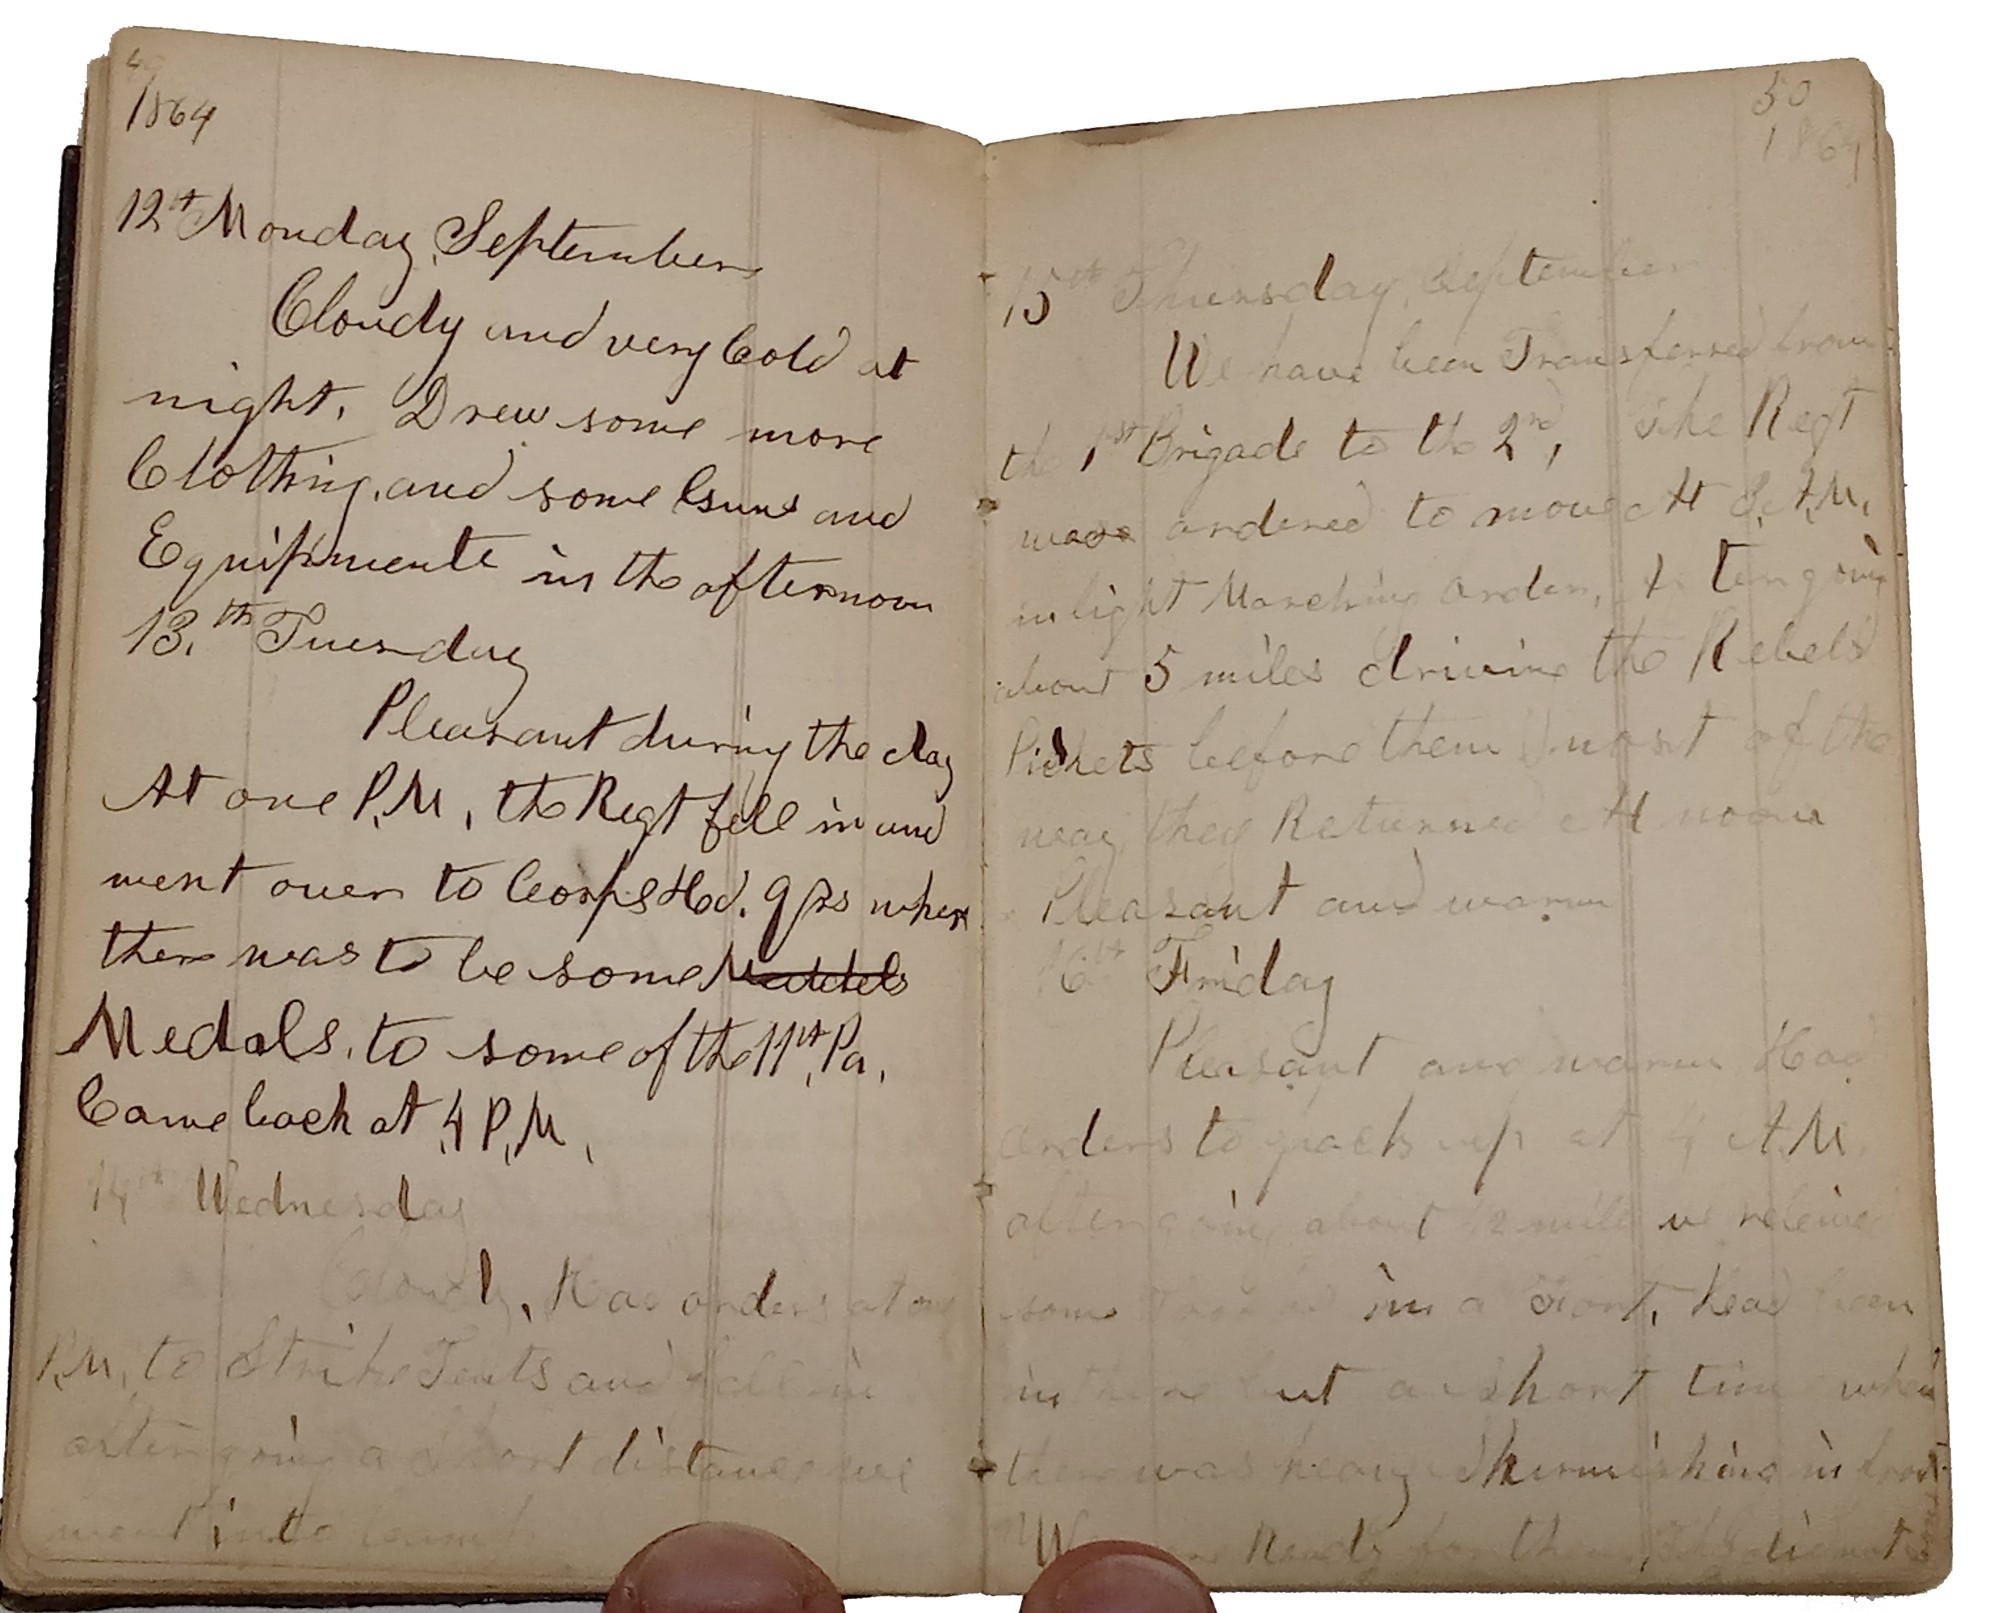 49
1864
12th Monday, September
Cloudy and very Cold at
night. Drew some more
Clothing, and some Guns and
Equipments in the afternoon
13.th Tuesday
Pleasant during the day
At one P.M, the Regt fell in and
went over to Corps Hd. qrs where
there was to be some Meddels
Medals, to some of the 11th, Pa,
Came back at 4 P,M,
14th Wednesday
Cloudy, Had orders at one
P,M, to Strike Tents and fall in
after going a short distance we
went into camp
50
1864
15th Thursday, September
We have been Transferred from
the 1st Brigade to the 2nd, The Regt
was ordered to move At 8, A,M,
in light Marching order, After going
about 5 miles driving the Rebels
Pickets before them most of the
way, they Returned At noon
Pleasant and warm
16th Friday
Pleasant and warm Had
orders to pack up at 4 A.M.
after going about 1/2 mile we releived
some in a Fort, head been
in there but a short time when
there was heavy Skirmishing in front
We were Ready for them,